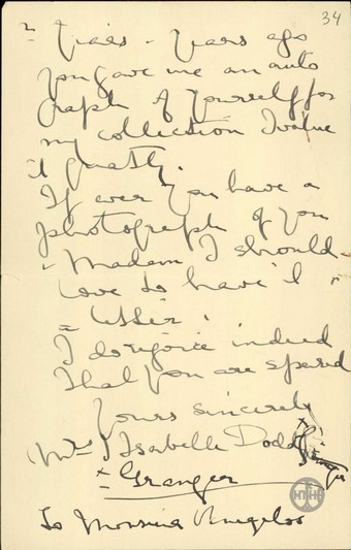 34
years ago
You gave me an auto
graph of Yourself for
my collection I value
it greatly.
If ever You have a
photograph of You
Madam I should
love to have it
I do rejoice indeed
that You are spared
Yours sincerely
Mrs Isabelle Dodd
Granger
To